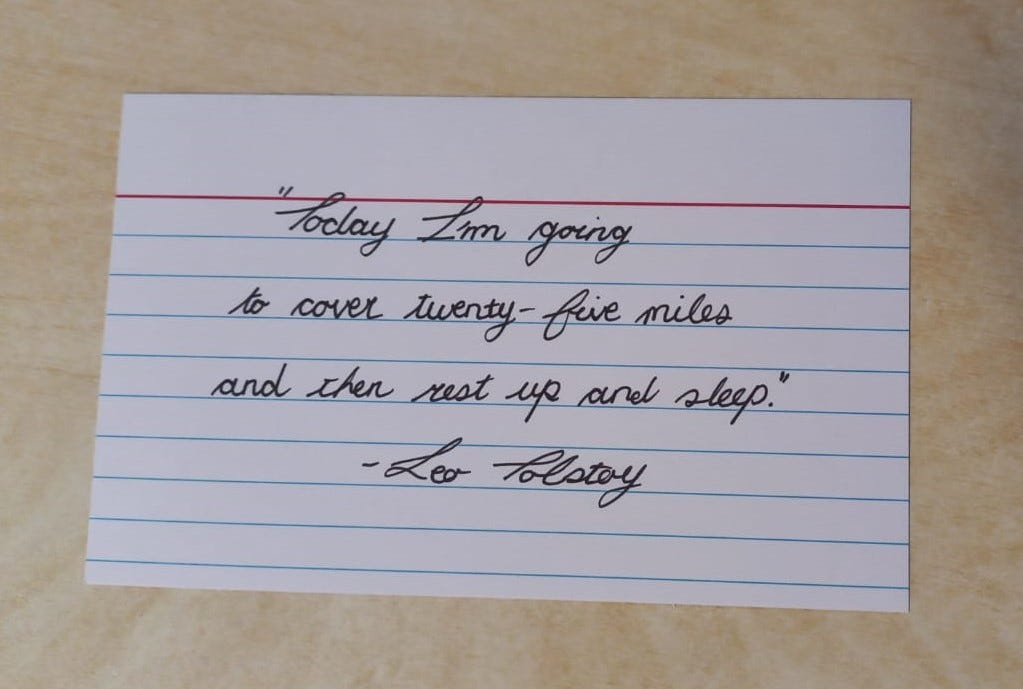 "Today I'm going
to cover twenty-five miles
and then rest up and sleep."
-Leo Tolstoy